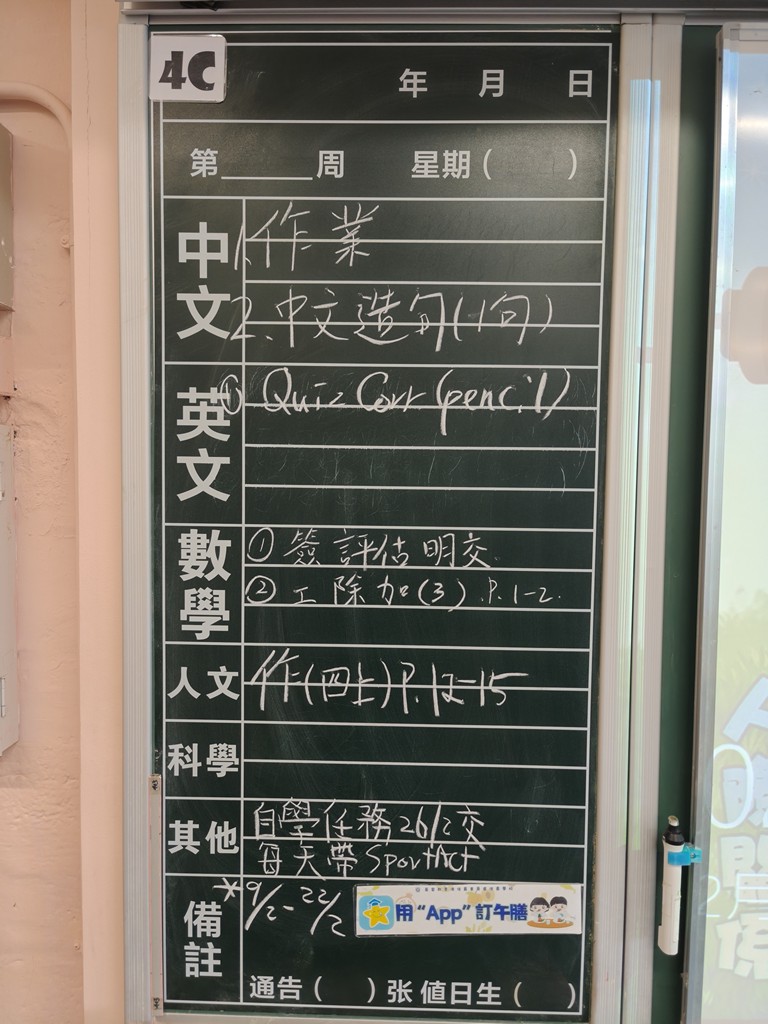 4C
年 月 日
第______周 星期( )
中文
1.作業
2.中文造句(1句)
英文
① Quiz Corr (pencil)
數學
① 簽評估明交
② 工除加(3) P.1-2.
人文
作(四上)P.12-15
科學
其他
自學任務26/2交
每天帶SportAct
備註
*9/2-22/2
用“App”訂午膳
通告( )张 值日生( )